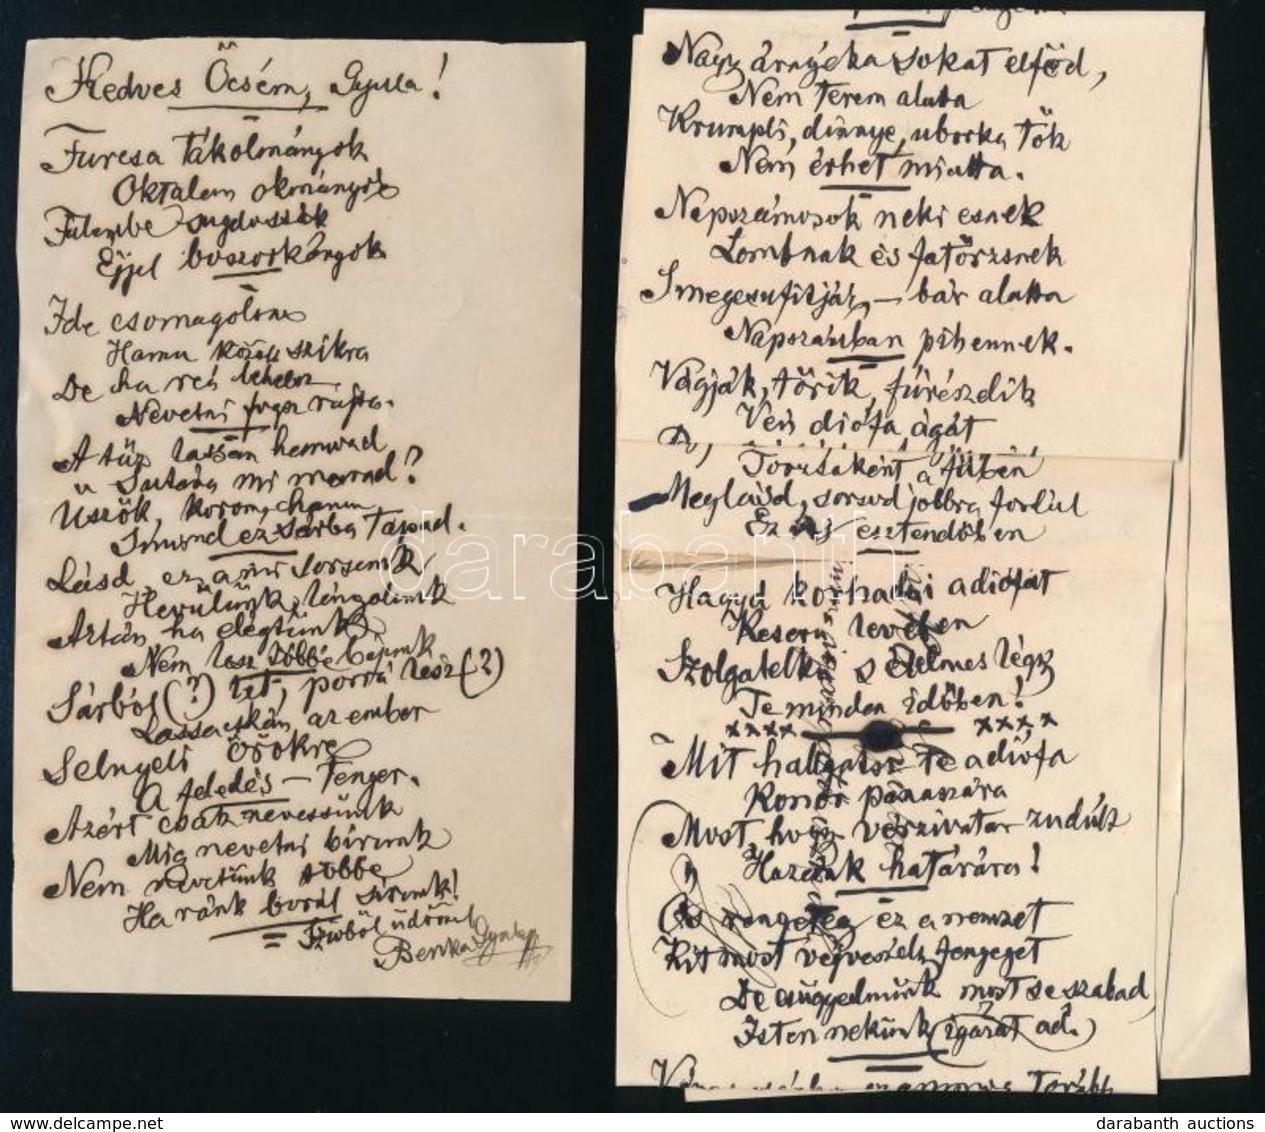 Kedves Öcsém, Gyula!
Furcsa tákolmányok
Oktalan okmányok
Fülembe sugdossák
Éjjel boszorkányok
Ide csomagolva
Hamu közé szikra
De ha reá lehelsz
Nevetni fogsz rajta.
A tűz lassan hamvad
Utána mi marad?
Üszök, korom,
S mind ez sárba tapad.
Lásd, ez a mi sorsunk
Hevülünk, lángolunk
Aztán ha elégtünk
Nem lesz többé bajunk
Sárból (?) lét, porrá lész (?)
Lassacskán az ember
S elnyeli örökre
A feledés-tenger.
Azért csak nevessünk
Míg nevetni bírunk
Nem nevetünk többé
Ha ránk borúl sírunk!
Szívből üdvözöl
Benka Gyula
Nagy árnyéka sokat elföd,
Nem terem alatta
Krumpli, dinnye, uborka, tök
Nem érhet miatta.
Napszámosok neki esnek
Lombnak és fatörzsnek
S megcsufitják, – bár alatta
Napszámban pihennek.
Vágják, törik, fűrészelik
Vén diófa ágát
Torzsaként a fűben
Meglásd, sorsod jobbra fordul
Ez új esztendőben
Hagyd korhadni a diófát
Keserű levében
Szolgatelkű s élelmes légy
Te minden időben!
xxxx xxxx
Mit hallgatsz te a diófa
Konor panaszára
Most hogy vérzivatar zudúlt
Hazánk határára!
És rengeteg ez a nemzet
Kit most végveszély fenyeget
De csüggednünk most se szabad
Isten nekünk (igazat ad.)
darabanth
darabanth auctions